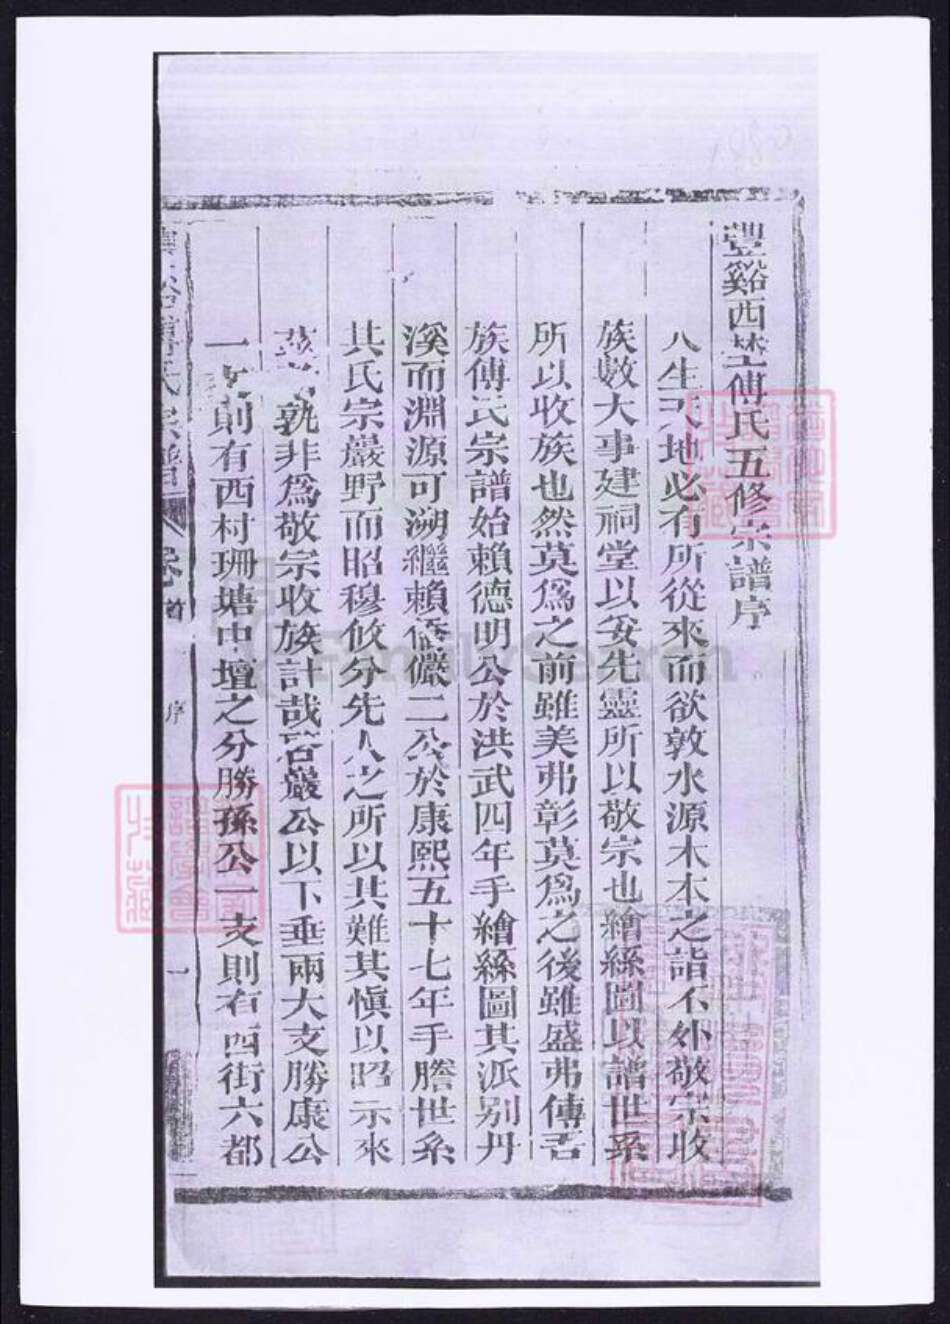 豐谿西埜傅氏五修宗譜序
人生天地必有所從來而欲敦水源木本之誼不外敬宗收
族數大事建祠堂以妥先靈所以敬宗也繪絲圖以譜世系
所以收族也然莫爲之前雖美弗彰莫爲之後雖盛弗傳吾
族傅氏宗譜始賴德明公於洪武四年手繪絲圖其派别丹
溪而淵源可溯繼賴僑儼二公於康熙五十七年手謄世系
共氏宗巖野而昭穆攸分先人之所以共難其愼以昭示來
孰非爲敬宗收族計哉吾巖公以下垂兩大支勝康公
一支則有西村珊塘中壇之分勝孫公一支則有西街六都
豐谿傅氏宗譜 卷首 序 一
FamilySearch